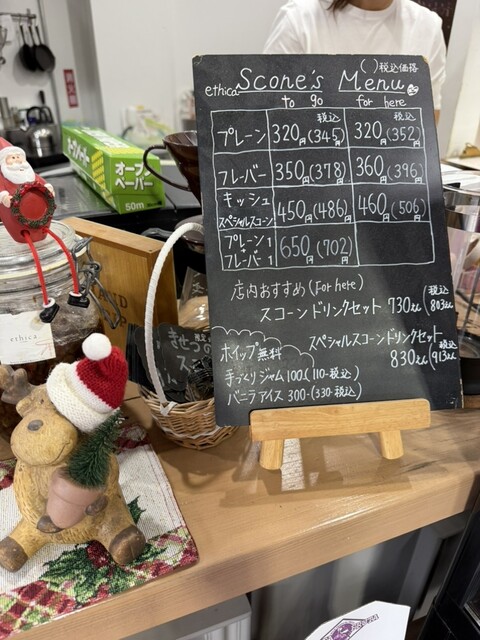 ( )税込価格
ethica Scone's Menu
to go for here
税込 税込
プレーン 320円(345円) 320円(352円)
フレーバー 350円(378円) 360円(396円)
キッシュ
スペシャルスコーン 450円(486円) 460円(506円)
プレーン1
+
フレーバー1 650円(702円)
店内おすすめ (for here)
スコーンドリンクセット 730yen (税込 803yen)
スペシャルスコーンドリンクセット
830yen (税込 913yen)
ホイップ無料
手づくりジャム100yen (110-税込)
バニラアイス 300-(330-税込)
オーブン
ペーパー
50m
ethica
きせつの